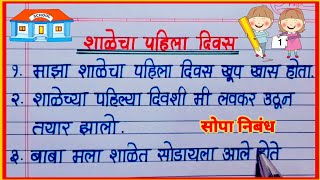 SCHOOL
शाळेचा पहिला दिवस
१. माझा शाळेचा पहिला दिवस खूप खास होता.
२. शाळेच्या पहिल्या दिवशी मी लवकर उठून
तयार झालो.
सोपा निबंध
३. बाबा मला शाळेत सोडायला आले होते
1